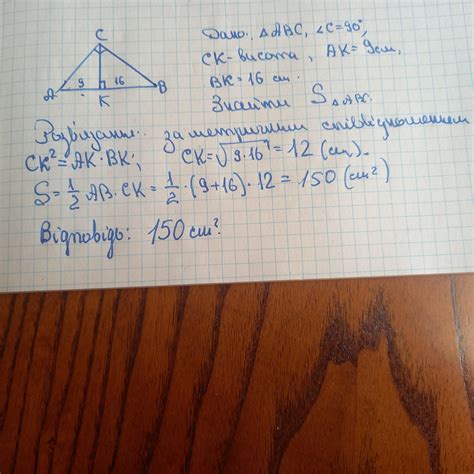 C
9
16
A
K
B
Дано: △ABC, ∠C=90°,
CK-висота, AK=9см,
BK=16 см.
Знайти S△ABC.
Розв'язання: за метричним співвідношенням
CK²=AK·BK; CK=√9·16=12 (см).
S=1/2 AB·CK=1/2·(9+16)·12=150 (см²)
Відповідь: 150 см².